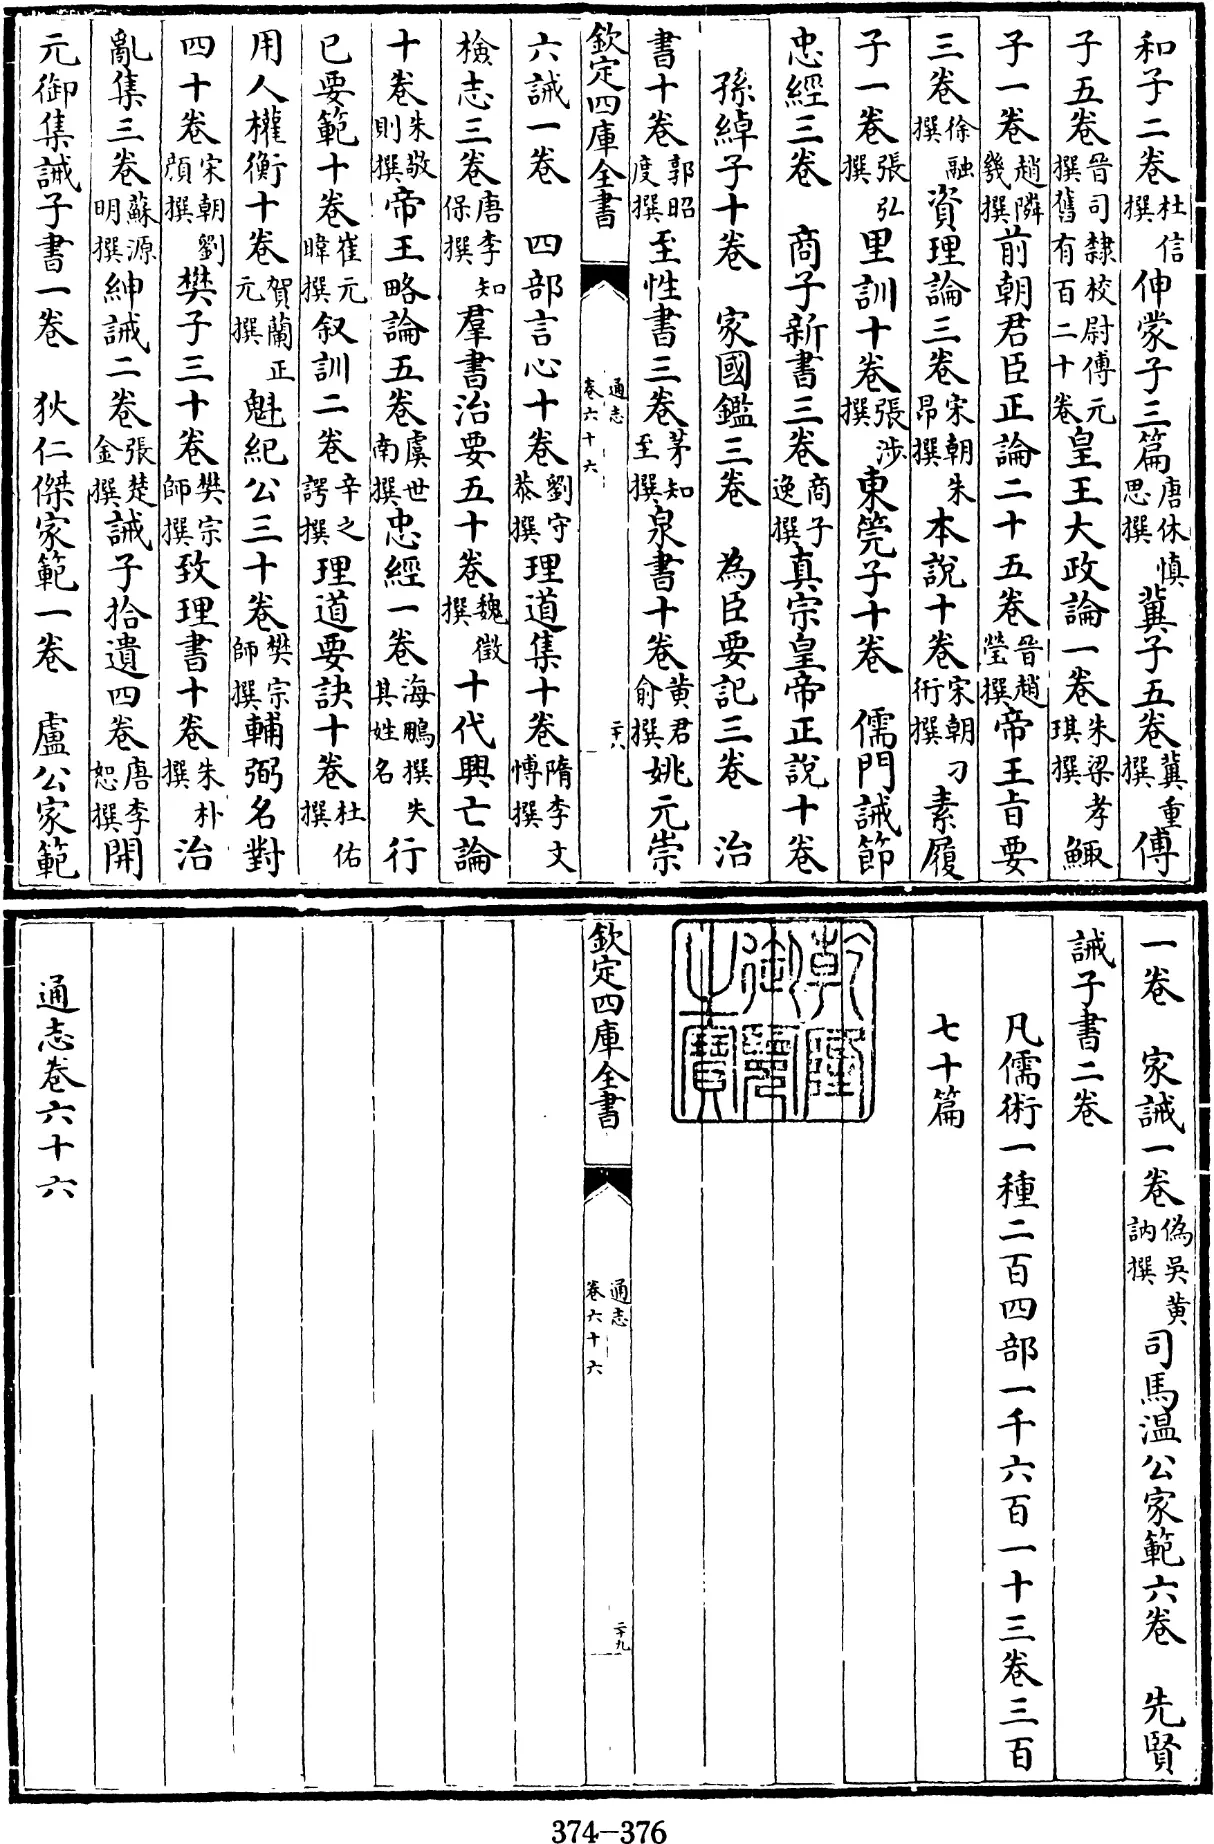 和子二卷杜信撰伸蒙子三篇唐休慎思撰冀子五卷冀重撰傅
子五卷晉司隸校尉傅元撰舊有百二十卷皇王大政論一卷朱梁孝琪撰鯫
子一卷趙隣幾撰前朝君臣正論二十五卷晉趙瑩撰帝王旨要
三卷徐融撰資理論三卷宋朝朱昂撰本說十卷宋朝刁衎撰素履
子一卷張弘撰里訓十卷張涉撰東筦子十卷　儒門誡節
忠經三卷　商子新書三卷商子逸撰真宗皇帝正說十卷
孫綽子十卷　家國鑑三卷　為臣要記三卷　治
書十卷郭昭度撰至性書三卷茅知至撰泉書十卷黄君俞撰姚元崇
欽定四庫全書　通志卷六十六　二十八
六誡一卷　四部言心十卷劉守恭撰理道集十卷隋李文博撰
檢志三卷唐李知保撰羣書治要五十卷魏徵撰十代興亡論
十卷朱敬則撰帝王略論五卷虞世南撰忠經一卷海鵬撰失其姓名行
已要範十卷崔元暐撰叙訓二卷辛之諤撰理道要訣十卷杜佑撰
用人權衡十卷賀蘭正元撰魁紀公三十卷樊宗師撰輔弼名對
四十卷宋朝劉顔撰樊子三十卷樊宗師撰致理書十卷朱朴撰治
亂集三卷蘇源明撰紳誡二卷張楚金撰誡子拾遺四卷唐李恕撰開
元御集誡子書一卷　狄仁傑家範一卷　盧公家範
一卷　家誡一卷偽吳黄訥撰司馬温公家範六卷　先賢
誡子書二卷
凡儒術一種二百四部一千六百一十三卷三百
七十篇
乾隆御覽之寶
欽定四庫全書　通志卷六十六　二十九
通志卷六十六
374-376